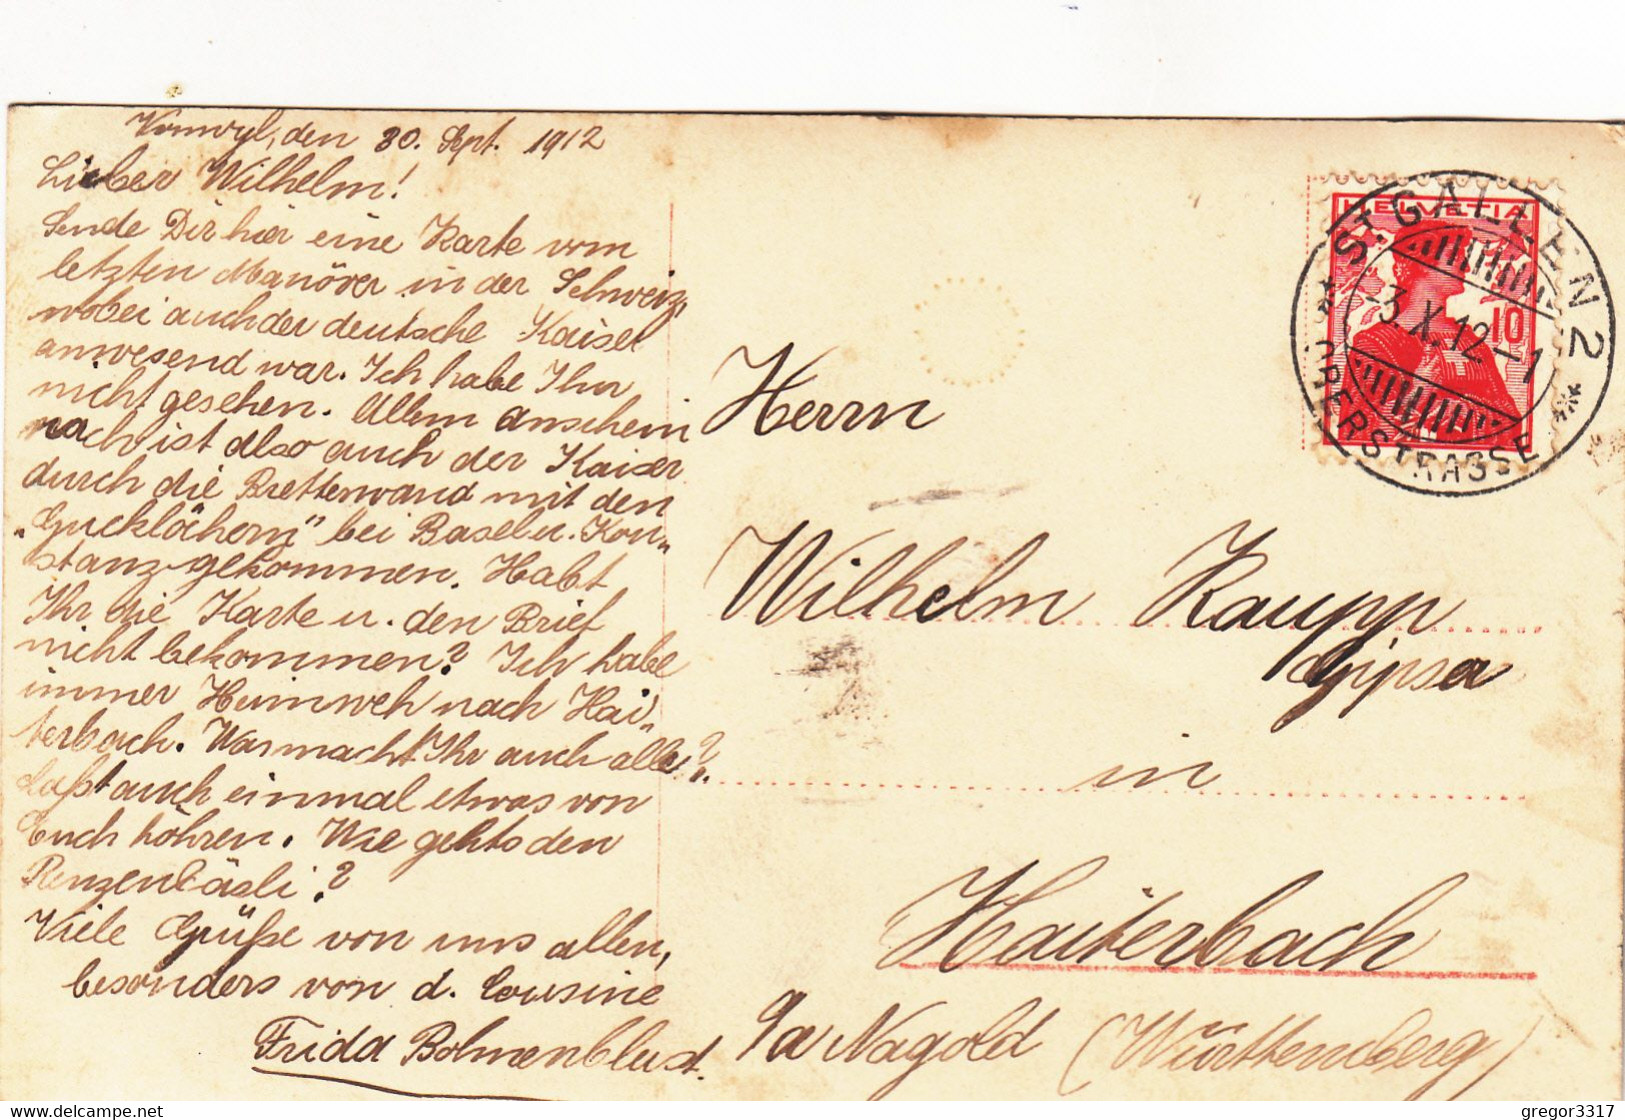 Vonwyl, den 30. Sept. 1912
Lieber Wilhelm!
Sende Dir hier eine Karte vom
letzten Manöver in der Schweiz,
wobei auch der deutsche Kaiser
anwesend war. Ich habe Ihn
nicht gesehen. Allem anschein
nach ist also auch der Kaiser
durch die Bretterwand mit den
„Gucklöchern" bei Basel u. Kon„
stanz gekommen. Habt
Ihr die Karte u. den Brief
nicht bekommen? Ich habe
immer Heimweh nach Hai„
terbach. Was macht Ihr auch alle?
Laßt auch einmal etwas von
Euch höhren. Wie gehts den
Renzenbäsli?
Viele Grüße von uns allen,
besonders von d. Cousine
Frida Bohnenblust.
HELVETIA
10
ST. GALLEN 2
-3.X.12.-1
Herrn
Wilhelm Raupp
Gipser
in
Haiterbach
Nagold (Württemberg)
www.delcampe.net
gregor3317